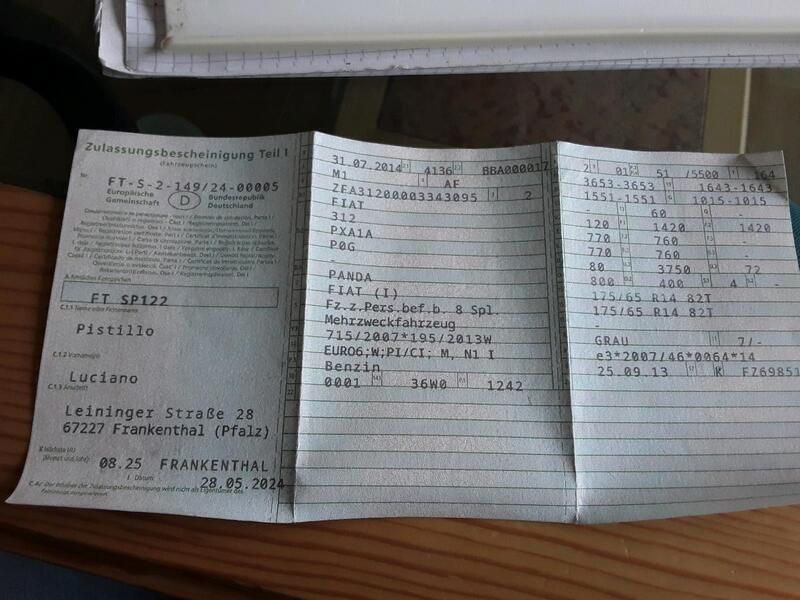 Zulassungsbescheinigung Teil I
(Fahrzeugschein)
Nr. FT-S-2-149/24-00005
Europäische Gemeinschaft
D
Bundesrepublik Deutschland
A Amtliches Kennzeichen
FT SP122
C.1.1 Name oder Firmenname
Pistillo
C.1.2 Vorname(n)
Luciano
C.1.3 Anschrift
Leininger Straße 28
67227 Frankenthal (Pfalz)
Nächste HU
(Monat und Jahr)
08.25 FRANKENTHAL
I Datum:
28.05.2024
C.4c Der Inhaber der Zulassungsbescheinigung wird nicht als Eigentümer des
Fahrzeugs ausgewiesen.
31.07.2014 4136 BBA000017
M1 AF
ZFA31200003343095 2
FIAT
312
PXA1A
P0G
-
PANDA
FIAT (I)
Fz.z.Pers.bef.b. 8 Spl.
Mehrzweckfahrzeug
715/2007*195/2013W
EURO6;W;PI/CI; M, N1 I
Benzin
0001 36W0 1242
2 01 51 /5500 164
3653-3653 1643-1643
1551-1551 1015-1015
60 -
120 1420 1420
770 760 -
770 760 -
80 3750 72
800 400 4 -
175/65 R14 82T
175/65 R14 82T
-
GRAU 7/-
e3*2007/46*0064*14
25.09.13 K FZ69851